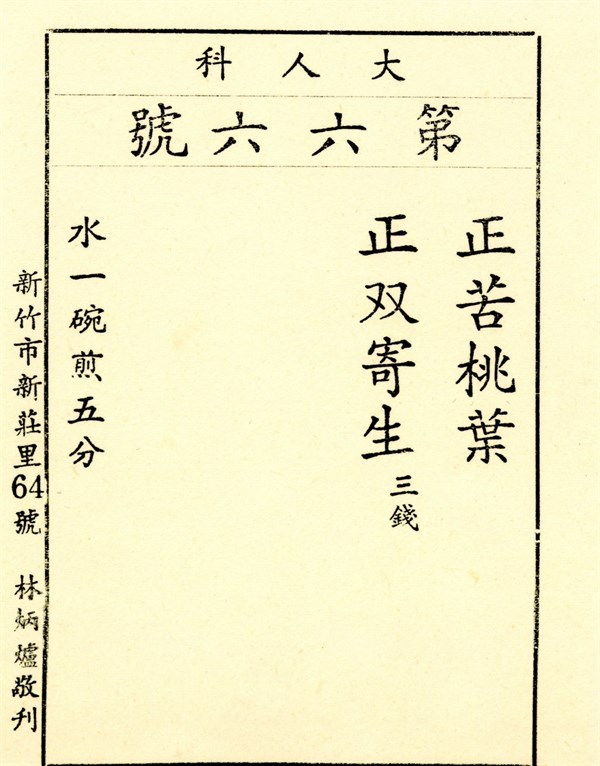 大人科
第六六號
正苦桃葉
正双寄生三錢
水一碗煎五分
新竹市新莊里64號 林炳爐敬刊